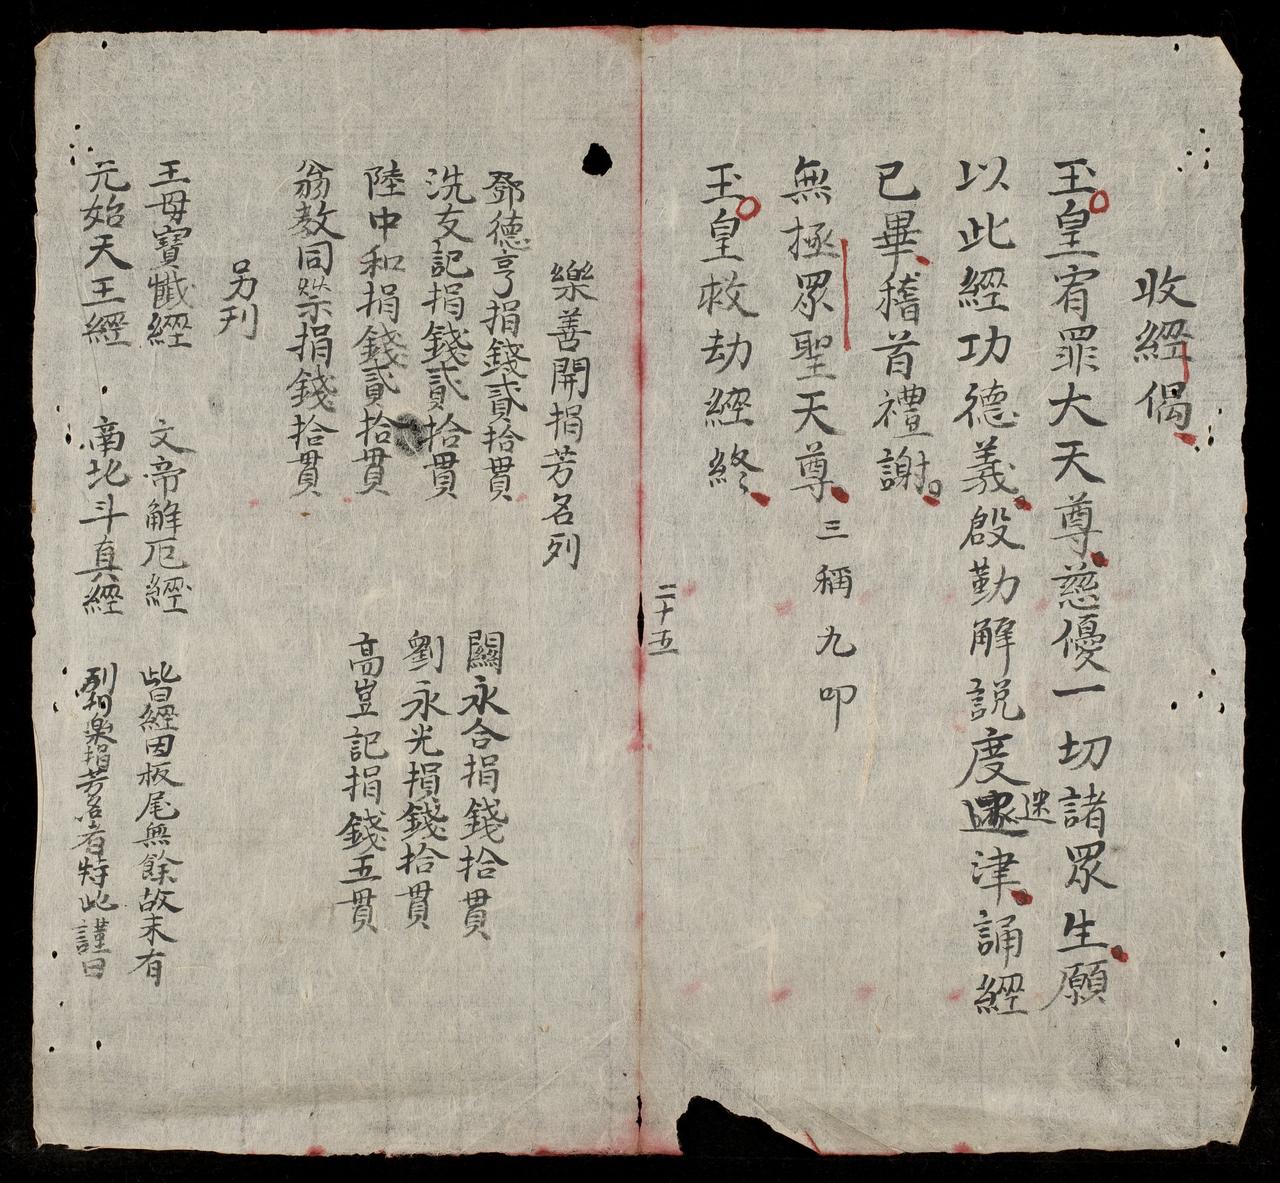 收經偈
玉皇宥罪大天尊慈優一切諸眾生願
以此經功德義殷勤解說度迷津誦經
已畢稽首禮謝
無極眾聖天尊三稱九叩
玉皇救劫經終
二十五
樂善開捐芳名列
鄧德亨捐錢貳拾貫
關永合捐錢拾貫
洗友記捐錢貳拾貫
劉永光捐錢拾貫
陸中和捐錢貳拾貫
高豈記捐錢五貫
翁教同祭捐錢拾貫
另刊
王母寶懺經
文帝解厄經
皆經因板尾無餘故未有
元始天王經
南北斗真經
列刊樂捐芳名者特此謹曰